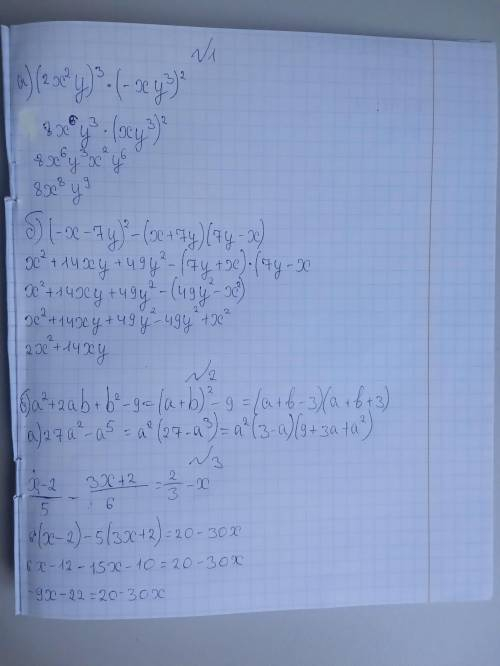 №1
а) (2x²y)³ · (-xy³)²
8x⁶y³ · (xy³)²
8x⁶y³x²y⁶
8x⁸y⁹
б) (-x-7y)² - (x+7y)(7y-x)
x²+14xy+49y² - (7y+x)·(7y-x
x²+14xy+49y² - (49y²-x²)
x²+14xy+49y²-49y²+x²
2x²+14xy
№2
б) a²+2ab+b²-9=(a+b)²-9=(a+b-3)(a+b+3)
а) 27a²-a⁵=a²(27-a³)=a²(3-a)(9+3a+a²)
№3
(x-2)/5 - (3x+2)/6 = 2/3 - x
6(x-2)-5(3x+2)=20-30x
6x-12-15x-10=20-30x
-9x-22=20-30x